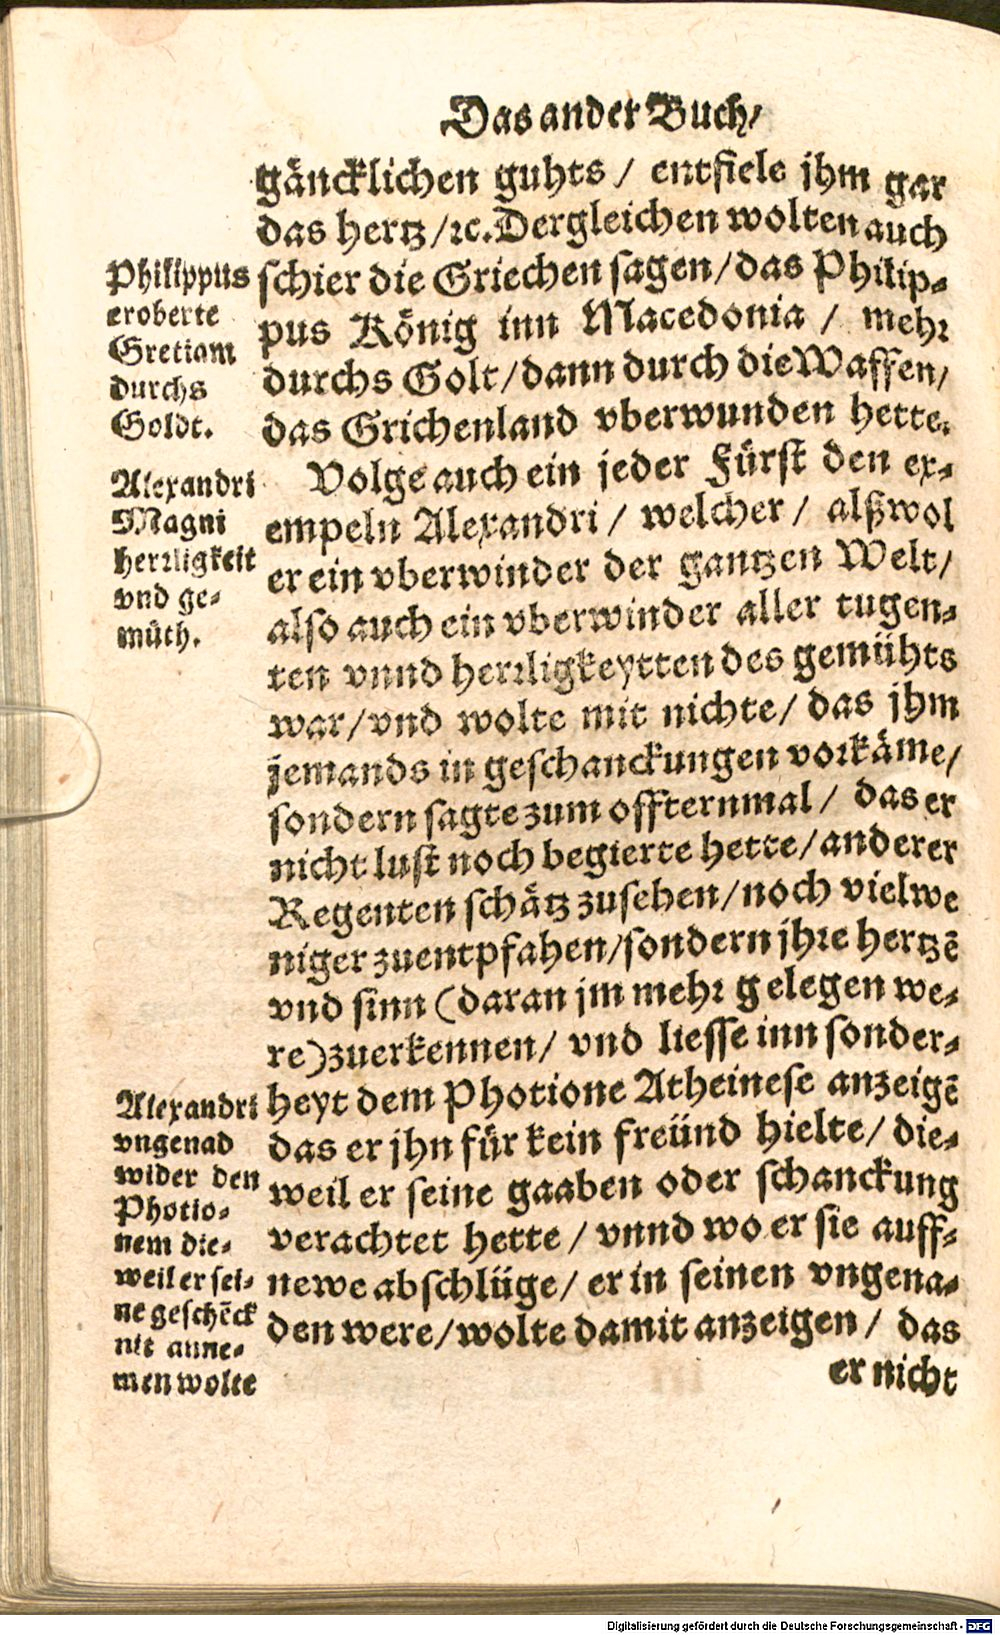 Das ander Buch/
gäncklichen guhts / entfiele jhm gar
das hertz /ꝛc. Dergleichen wolten auch
schier die Griechen sagen/das Philip-
pus König inn Macedonia / mehr
durchs Golt/dann durch die Waffen/
das Grichenland vberwunden hette.
Philippus
eroberte
Gretiam
durchs
Goldt.
Volge auch ein jeder Fürst den ex-
empeln Alexandri / welcher / alßwol
er ein vberwinder der gantzen Welt/
also auch ein vberwinder aller tugen-
ten vnnd herrligkeytten des gemühts
war/vnd wolte mit nichte/ das jhm
jemands in geschanckungen vorkäme/
sondern sagte zum offternmal / das er
nicht lust noch begierte hette/anderer
Regenten schätz zusehen/noch vielwe
niger zuentpfahen/sondern jhre hertzē
vnd sinn (daran jm mehr gelegen we-
re)zuerkennen/ vnd liesse inn sonder-
heyt dem Photione Atheinese anzeigē
das er jhn für kein freünd hielte/ die-
weil er seine gaaben oder schanckung
verachtet hette / vnnd wo er sie auff-
newe abschlüge/ er in seinen vngena-
den were/wolte damit anzeigen / das
er nicht
Alexandri
Magni
herrligkeit
vnd ge-
müth.
Alexandri
vngenad
wider den
Photio-
nem die-
weil er sei-
ne geschēck
nit anne-
men wolte
Digitalisierung gefördert durch die Deutsche Forschungsgemeinschaft - DFG